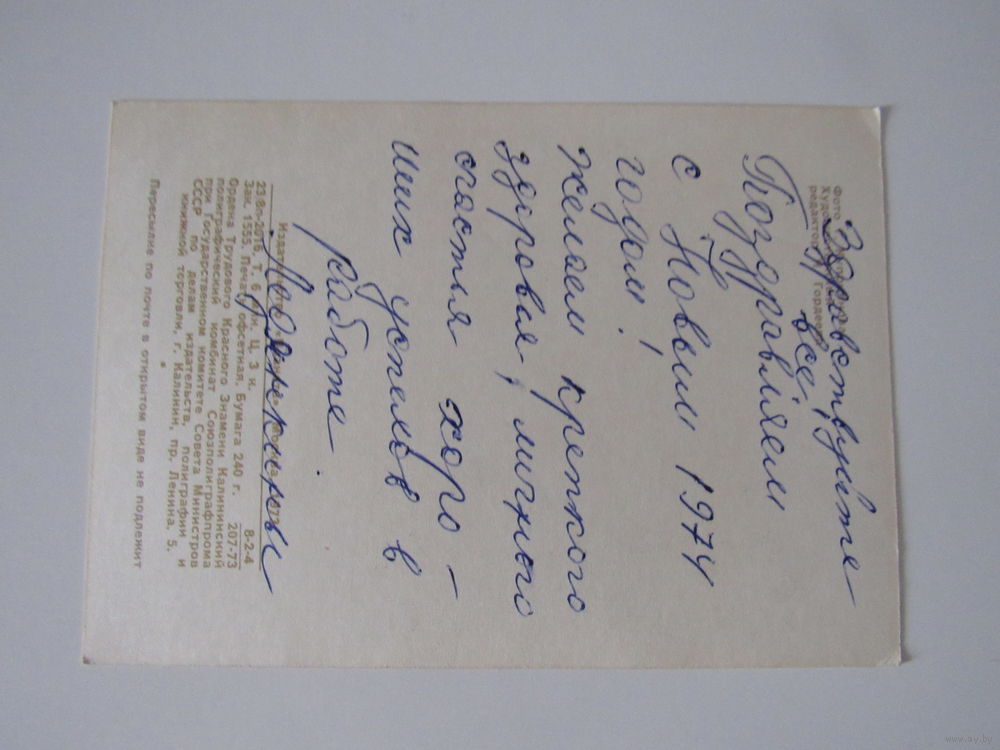 Фото
Худо
редактор Гордеев
Здравствуйте
все!
Поздравляем
с Новым 1974
годом!
Желаем крепкого
здоровья, личного
счастья хоро-
ших успехов в
работе.
Издательство
23.8п-2016. Т. 6 Ц. 3 к. 8-2-4
Зак. 1555. Печать офсетная. Бумага 240 г. 207-73
Ордена Трудового Красного Знамени Калининский
полиграфический комбинат Союзполиграфпрома
при Государственном комитете Совета Министров
СССР по делам издательств, полиграфии и
книжной торговли, г. Калинин, пр. Ленина, 5.
Пересылке по почте в открытом виде не подлежит
www.ay.by